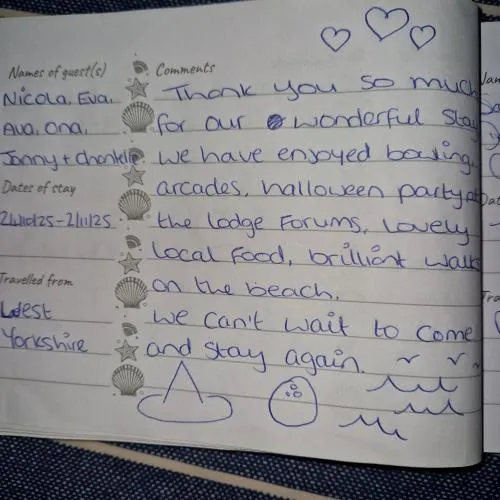 Names of guest(s)
Nicola, Eva,
Ava, Ona,
Jonny + chantelle
Dates of stay
2/11/25
Travelled from
West
Yorkshire
Comments
Thank you so much
for our wonderful stay
we have enjoyed bowling,
arcades, halloween party at
the lodge Forums, Lovely
local food, brilliant walks
on the beach.
we can't wait to come
and stay again.